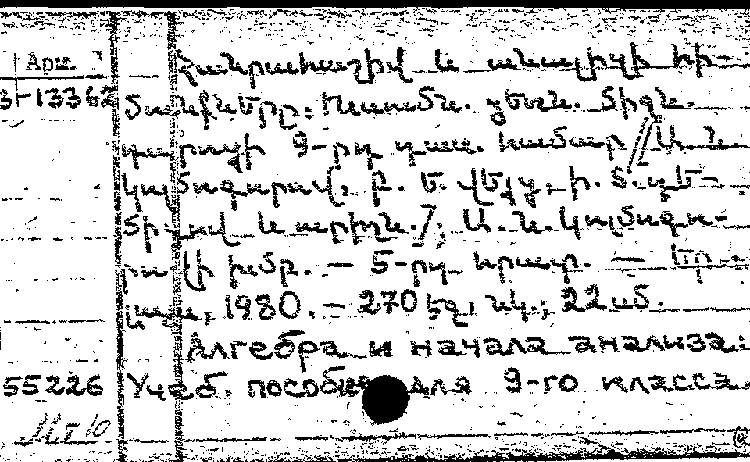 Арм.
Հանրահաշիվ և անալիզի հի-
Յ1-13362
մունքները: Ուսումն. ձեռն. միջն.
դպրոցի 9-րդ դաս. համար /Ա. Ն.
Կոլմոգորով, Բ. Ե. Վեյց, Ի. Տ. Դե-
միդով և ուրիշն./; Ա. Ն. Կոլմոգո-
րովի խմբ. — 5-րդ հրատ. — Եր.:
Լույս, 1980. — 270 էջ, նկ.; 22 սմ.
Алгебра и начала анализа:
55226 Учеб. пособие для 9-го класса